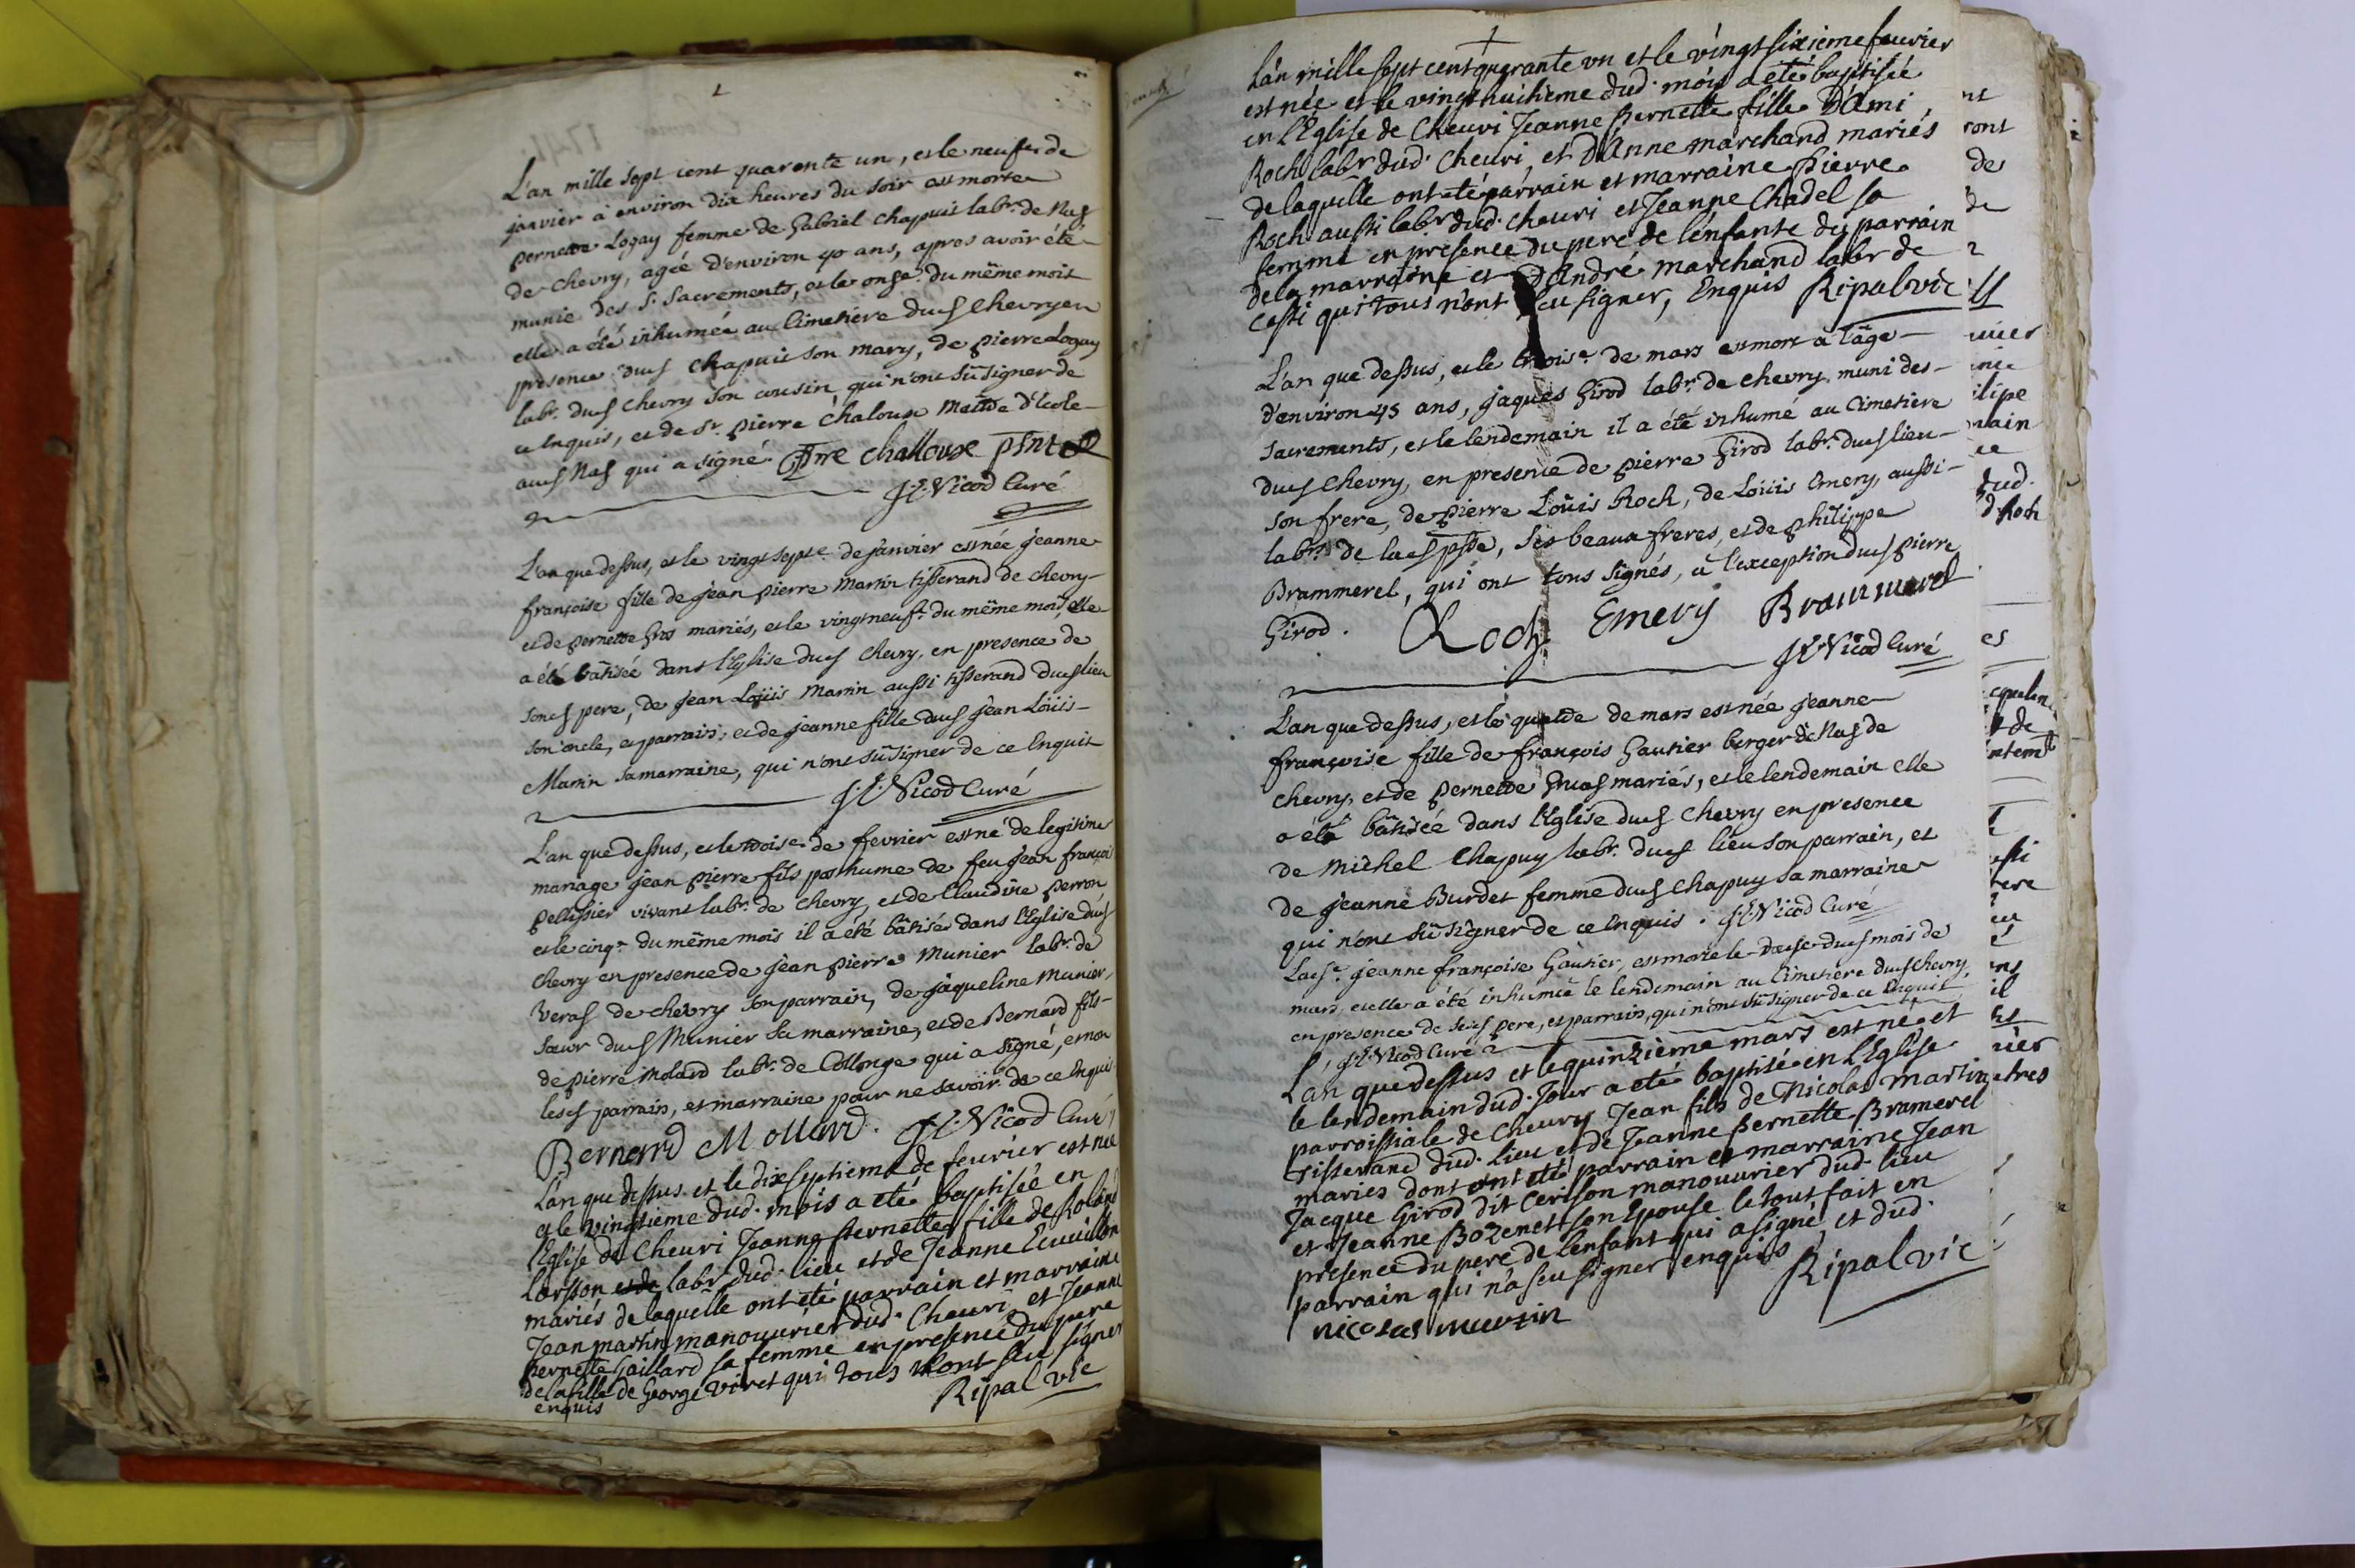 L'an mille sept cent quarante un, et le neufe. de
janvier à environ dix heures du soir est morte
pernette Logay femme de Gabriel Chapuis labr. de Nas
de Chevry, agée d'environ 40 ans, apres avoir été
munie des S. Sacrements, et le onze. du même mois
elle a été inhumée au Cimetiere dud Chevry en
presence dud Chapuis son mary, de pierre Logay
labr. dud Chevry son cousin, qui n'ont sû signer de
ce Enquis, et de Sr. pierre Chaloux Maitre d'Ecole
aud Nas qui a signé. Prre challoux psnt
J.L. Nicod Curé
L'an que dessus, et le vingt septe. de janvier est née jeanne
françoise fille de jean pierre Martin tisserand de Chevry
et de pernette Gros mariés, et le vingt neufe. du même mois, elle
a été bâtisée dans l'Eglise dud Chevry, en presence de
sond pere, de jean Loüis Martin aussi tisserand dud lieu
son oncle, et parrain, et de jeanne fille dud jean Loüis
Martin sa marraine, qui n'ont sû signer de ce Enquis
J.L. Nicod Curé
L'an que dessus, et le troise. de fevrier est né de legitime
mariage jean pierre fils posthume de feu jean françois
pelissier vivant labr. de Chevry, et de Claudine perron
et le cinqe. du même mois il a été bâtisé dans l'Eglise dud
Chevry en presence de jean pierre Munier labr. de
Veras de Chevry son parrain, de jaqueline Munier,
sœur dud Munier sa marraine, et de Bernard fils
de pierre Molard labr. de Collonge qui a signé, et non
lesd parrain, et marraine pour ne savoir de ce Enquis
Bernard Mollard. J.L. Nicod Curé
L'an que dessus et le dixseptieme de feurier est née
et le vingtieme dud. mois a eté baptisée en
l'Eglise de Cheuri Jeanne Pernette fille de Roland
Larsson labr dud. lieu et de Jeanne
mariés de laquelle ont eté parrain et marraine
Jean martin manouurier dud. Cheuri et Jeanne
Pernette Gaillard sa femme en presence du pere
de la fille de George Viret qui tous n'ont seu signer
enquis Ripal vic
L'an mille sept cent quarante un et le vingt sixieme feurier
est née et le vingt huitieme dud. mois a eté baptisée
en l'Eglise de Cheuri Jeanne Pernette fille D'Ami
Roch labr dud. Cheuri, et D'Anne marchand mariés
de laquelle ont eté parrain et marraine Pierre
Roch aussi labr dud. cheuri et Jeanne Chadel sa
femme en presence du pere de l'enfante du parrain
de la marraine et D'André marchand labr de
Cessi qui tous n'ont seu signer, Enquis Ripal vic
L'an que dessus, et le troise. de mars est mort à l'âge
d'environ 45 ans, jaques Girod labr. de Chevry, muni des
sacrements, et le lendemain il a été inhumé au Cimetiere
dud Chevry, en presence de pierre Girod labr. dud lieu
son frere, de pierre Loüis Roch, de Loüis Emery, aussi
labrs. de lad psse, ses beaux freres, et de philippe
Brammerel, qui ont tous signés, à l'exception dud pierre
Girod. Roch Emery Brammerel
J.L. Nicod Curé
L'an que dessus, et le quatre de mars est née jeanne
françoise fille de françois Gautier berger de Nas de
Chevry, et de pernette mariés, et le lendemain elle
a été bâtisée dans l'Eglise dud Chevry en presence
de Michel Chapuy labr. dud lieu son parrain, et
de jeanne Burdet femme dud Chapuy sa marraine
qui n'ont sû signer de ce Enquis. J.L. Nicod Curé
Lade. jeanne françoise Gautier, est morte le dud mois de
mars, et elle a été inhumée le lendemain au Cimetiere dud Chevry,
en presence de sesd pere, et parrain, qui n'ont sû signer de ce Enquis
J.L. Nicod Curé
L'an que dessus et le quinzieme mars est né, et
le lendemain dud. Jour a eté baptisé en l'Eglise
parroissiale de Cheury Jean fils de Nicolas Martin
Tisserand dud. lieu et de Jeanne Pernette Bramerel
mariés dont ont eté parrain et marraine Jean
Jacque Girod dit Cerisson manouurier dud. lieu
et Jeanne Bozenet son Epouse le tout fait en
presence du pere de l'enfant qui a signé, et dud.
parrain qui n'a seu signer enquis Ripal vic
nicolas martin